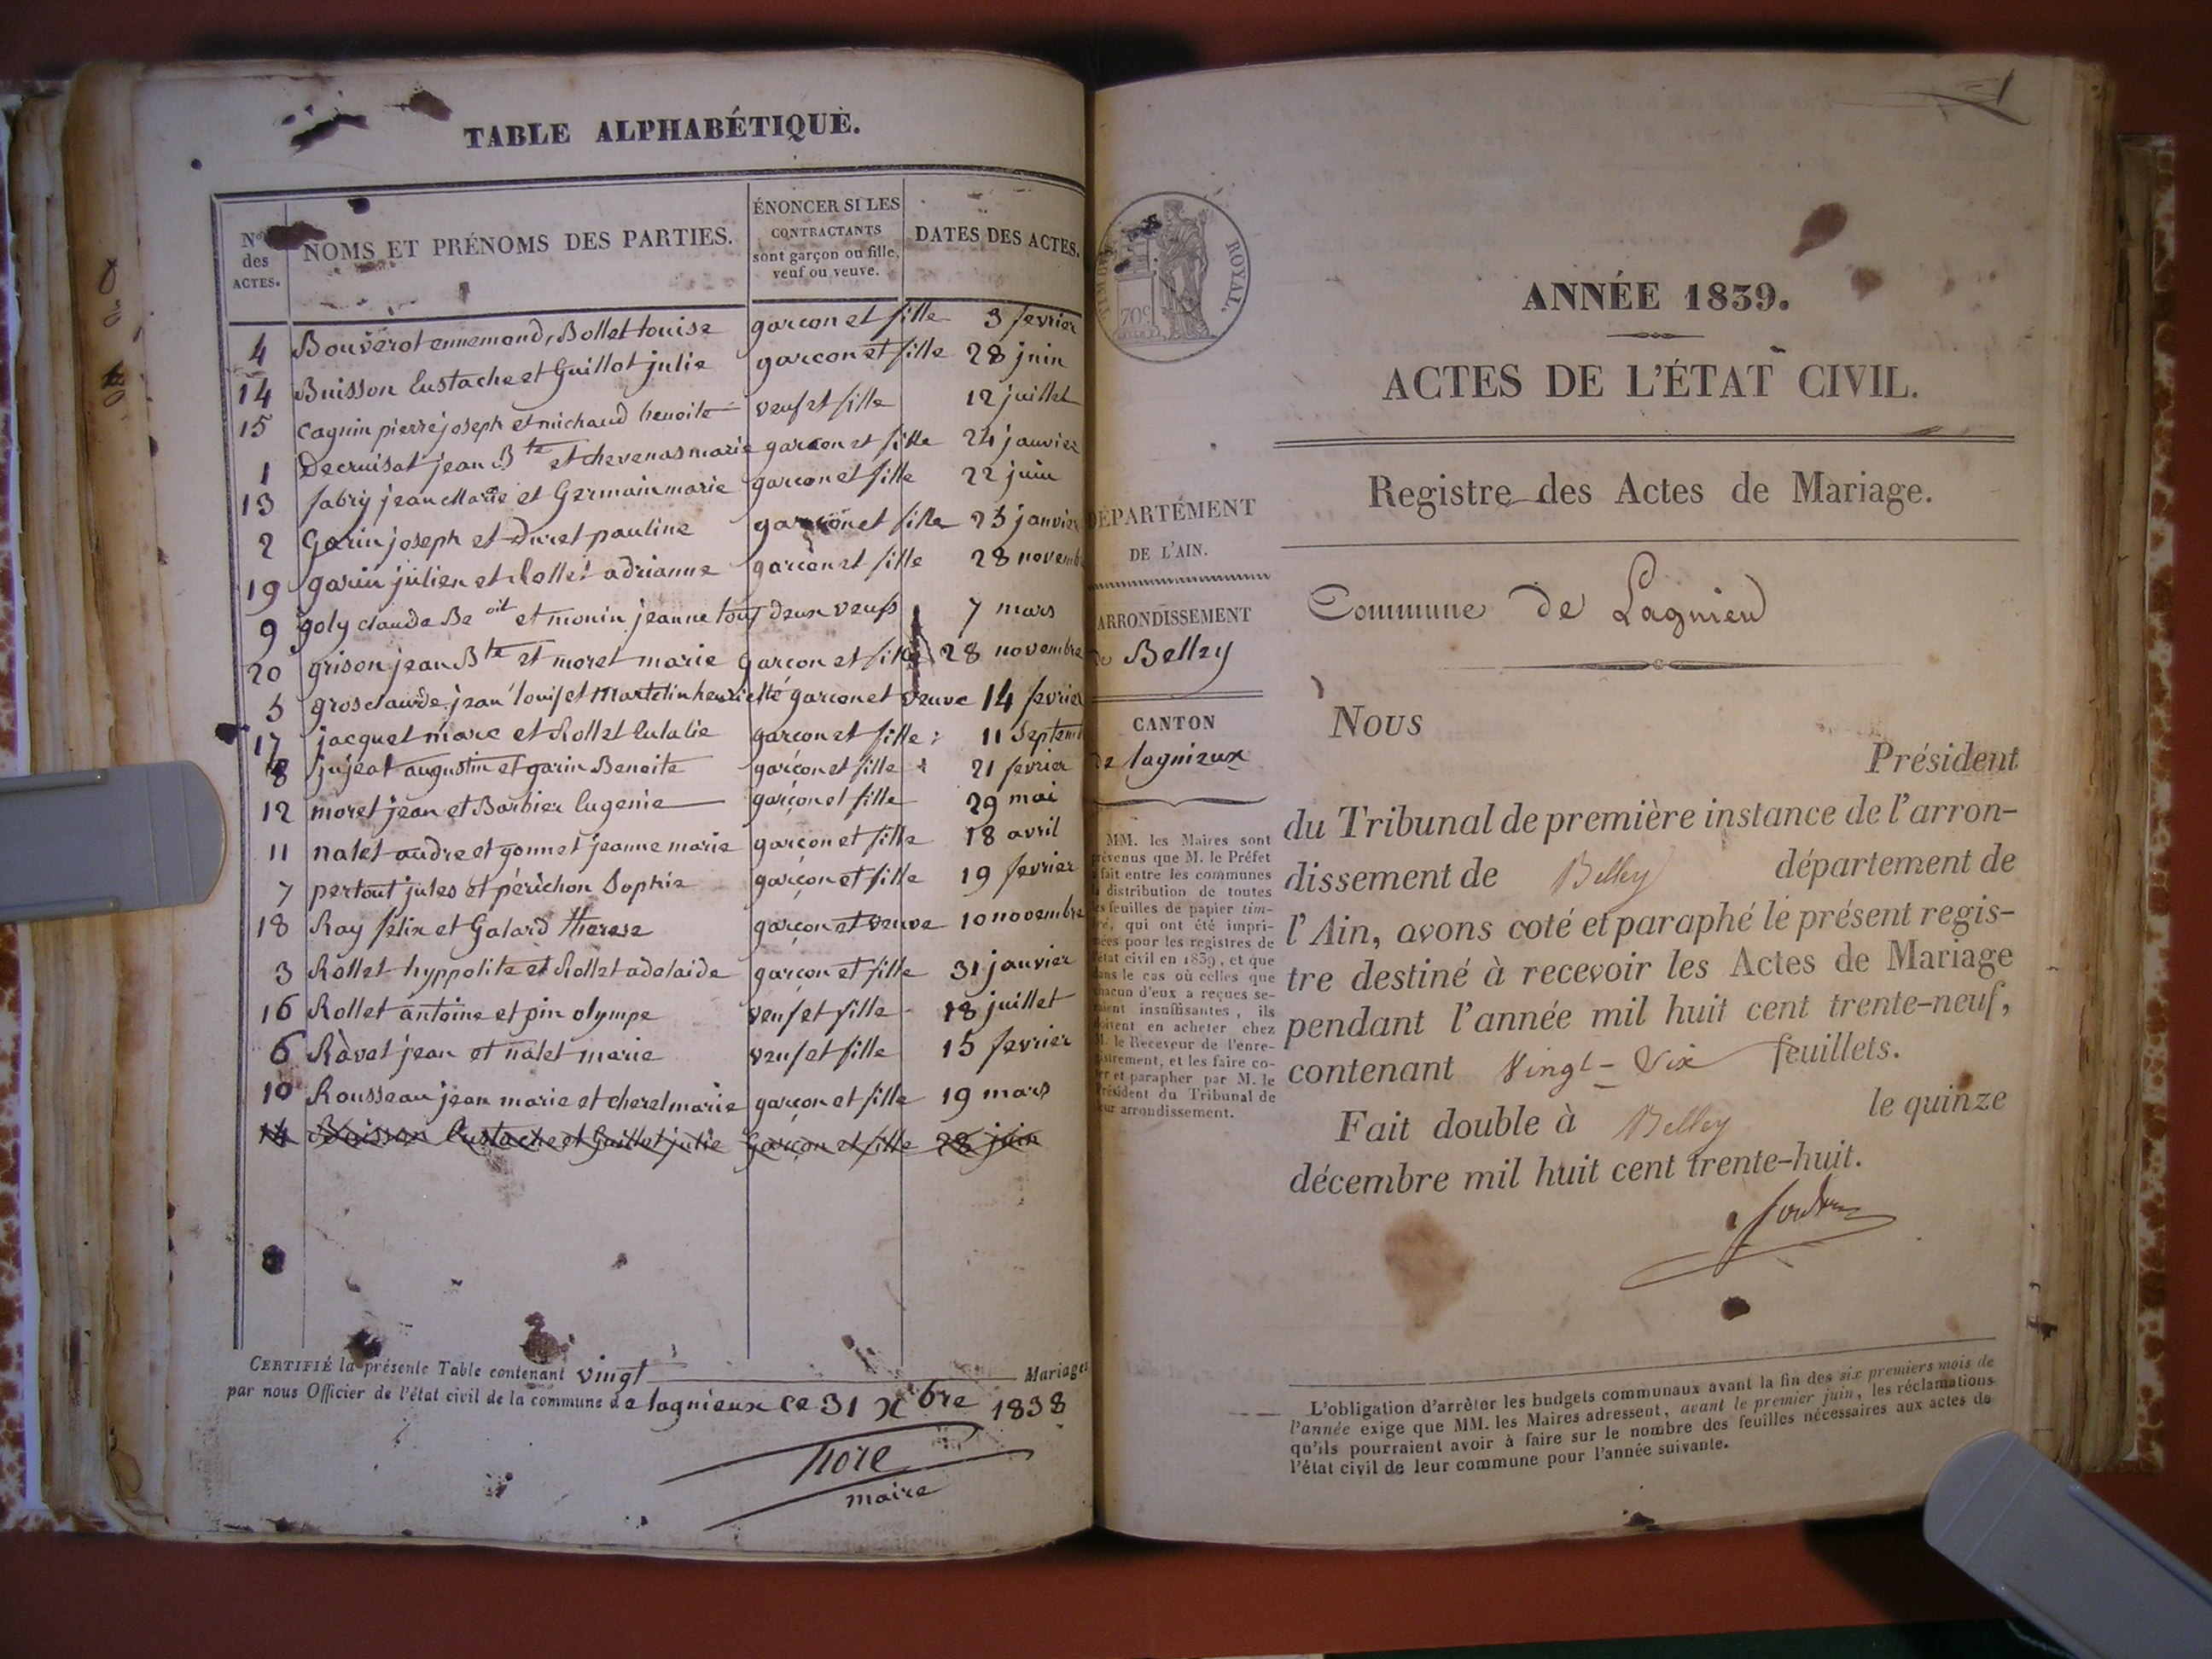 TABLE ALPHABÉTIQUE.
Nos des ACTES. NOMS ET PRÉNOMS DES PARTIES. ÉNONCER SI LES CONTRACTANTS sont garçon ou fille, veuf ou veuve. DATES DES ACTES.
4 Bouverot ennemond, Bollet louise garcon et fille 3 fevrier
14 Buisson Eustache et Guillot julie garcon et fille 28 juin
15 cagnin pierre joseph et michaud benoite veuf et fille 12 juillet
1 Decruisat jean Bte et chevenas marie garcon et fille 24 janvier
13 fabry jean Marie et Germain marie garcon et fille 22 juin
2 Garin joseph et Duret pauline garcon et fille 23 janvier
19 garin julien et Rollet adrianne garcon et fille 28 novemb
9 goly claude Be oit et monin jeanne touf deux veufs 7 mars
20 grison jean Bte et moret marie garcon et fille 28 novembre
5 grosclaude jean louis et Martelin henriette garcon et veuve 14 fevrier
17 jacquet marc et Rollet Eulalie garcon et fille 11 Septem
8 jujeat augustin et garin Benoite garçon et fille 21 fevrier
12 moret jean et Barbier Eugenie garçon et fille 29 mai
11 nalet andre et gonnet jeanne marie garçon et fille 18 avril
7 pertout jules et périchon Sophie garçon et fille 19 fevrier
18 Ray felix et Galard therese garçon et veuve 10 novembre
3 Rollet hyppolite et Rollet adelaide garçon et fille 31 janvier
16 Rollet antoine et pin olympe veuf et fille 18 juillet
6 Ravet jean et nalet marie veuf et fille 15 fevrier
10 Rousseau jean marie et cherel marie garçon et fille 19 mars
14 Buisson Eustache et Guillot julie Garçon et fille 28 juin
CERTIFIÉ la présente Table contenant vingt Mariages
par nous Officier de l'état civil de la commune de lagnieux ce 31 Xbre 1838
maire
ROYAL.
70c
ANNÉE 1839.
ACTES DE L'ÉTAT CIVIL.
Registre des Actes de Mariage.
Commune de Lagnieu
DÉPARTEMENT
DE L'AIN.
ARRONDISSEMENT
de Belley
CANTON
de lagnieux
MM. les Maires sont
prévenus que M. le Préfet
a fait entre les communes
la distribution de toutes
les feuilles de papier tim-
bré, qui ont été impri-
mées pour les registres de
l'état civil en 1839, et que
dans le cas où celles que
chacun d'eux a reçues se-
raient insuffisantes, ils
doivent en acheter chez
M. le Receveur de l'enre-
gistrement, et les faire co-
ter et parapher par M. le
Président du Tribunal de
leur arrondissement.
Nous
Président
du Tribunal de première instance de l'arron-
dissement de Belley département de
l'Ain, avons coté et paraphé le présent regis-
tre destiné à recevoir les Actes de Mariage
pendant l'année mil huit cent trente-neuf,
contenant Vingt-Six feuillets.
Fait double à Belley le quinze
décembre mil huit cent trente-huit.
L'obligation d'arrêter les budgets communaux avant la fin des six premiers mois de
l'année exige que MM. les Maires adressent, avant le premier juin, les réclamations
qu'ils pourraient avoir à faire sur le nombre des feuilles nécessaires aux actes de
l'état civil de leur commune pour l'année suivante.